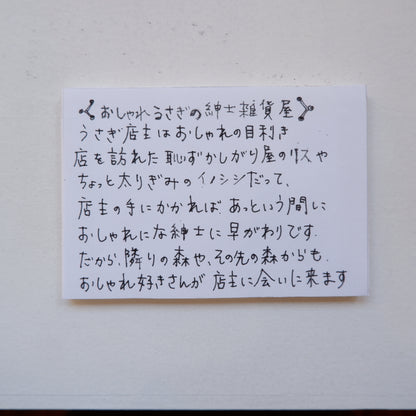 おしゃれうさぎの紳士雑貨屋
うさぎ店主はおしゃれの目利き
店を訪れた恥ずかしがり屋のリスや
ちょっと太りぎみのイノシシだって、
店主の手にかかれば、あっという間に
おしゃれにな紳士に早がわりです.
だから、隣りの森や、その先の森からも.
おしゃれ好きさんが店主に会いに来ます